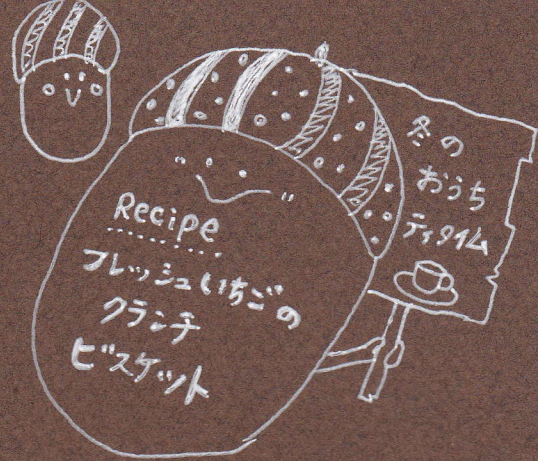 Recipe
フレッシュいちごの
クランチ
ビスケット
冬の
おうち
ティタイム